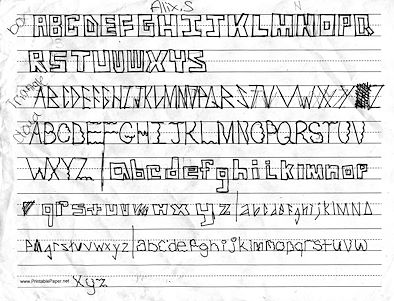 Alix.S N
box ABCDEFGHIJKLMNOPQ
RSTUUWXYS
Triangle ABCDEFGHIJKLMNOPQRSTUVWXYZ
ABCDEFGHIJKLMNOPQRSTUV
WXYZ|abcdefghijklmnop
qrstuvwxyz|abcdefghijklMNO
PQrstuvwxyz|abcdefghijklmnopqrstuvw
www.PrintablePaper.net xyz